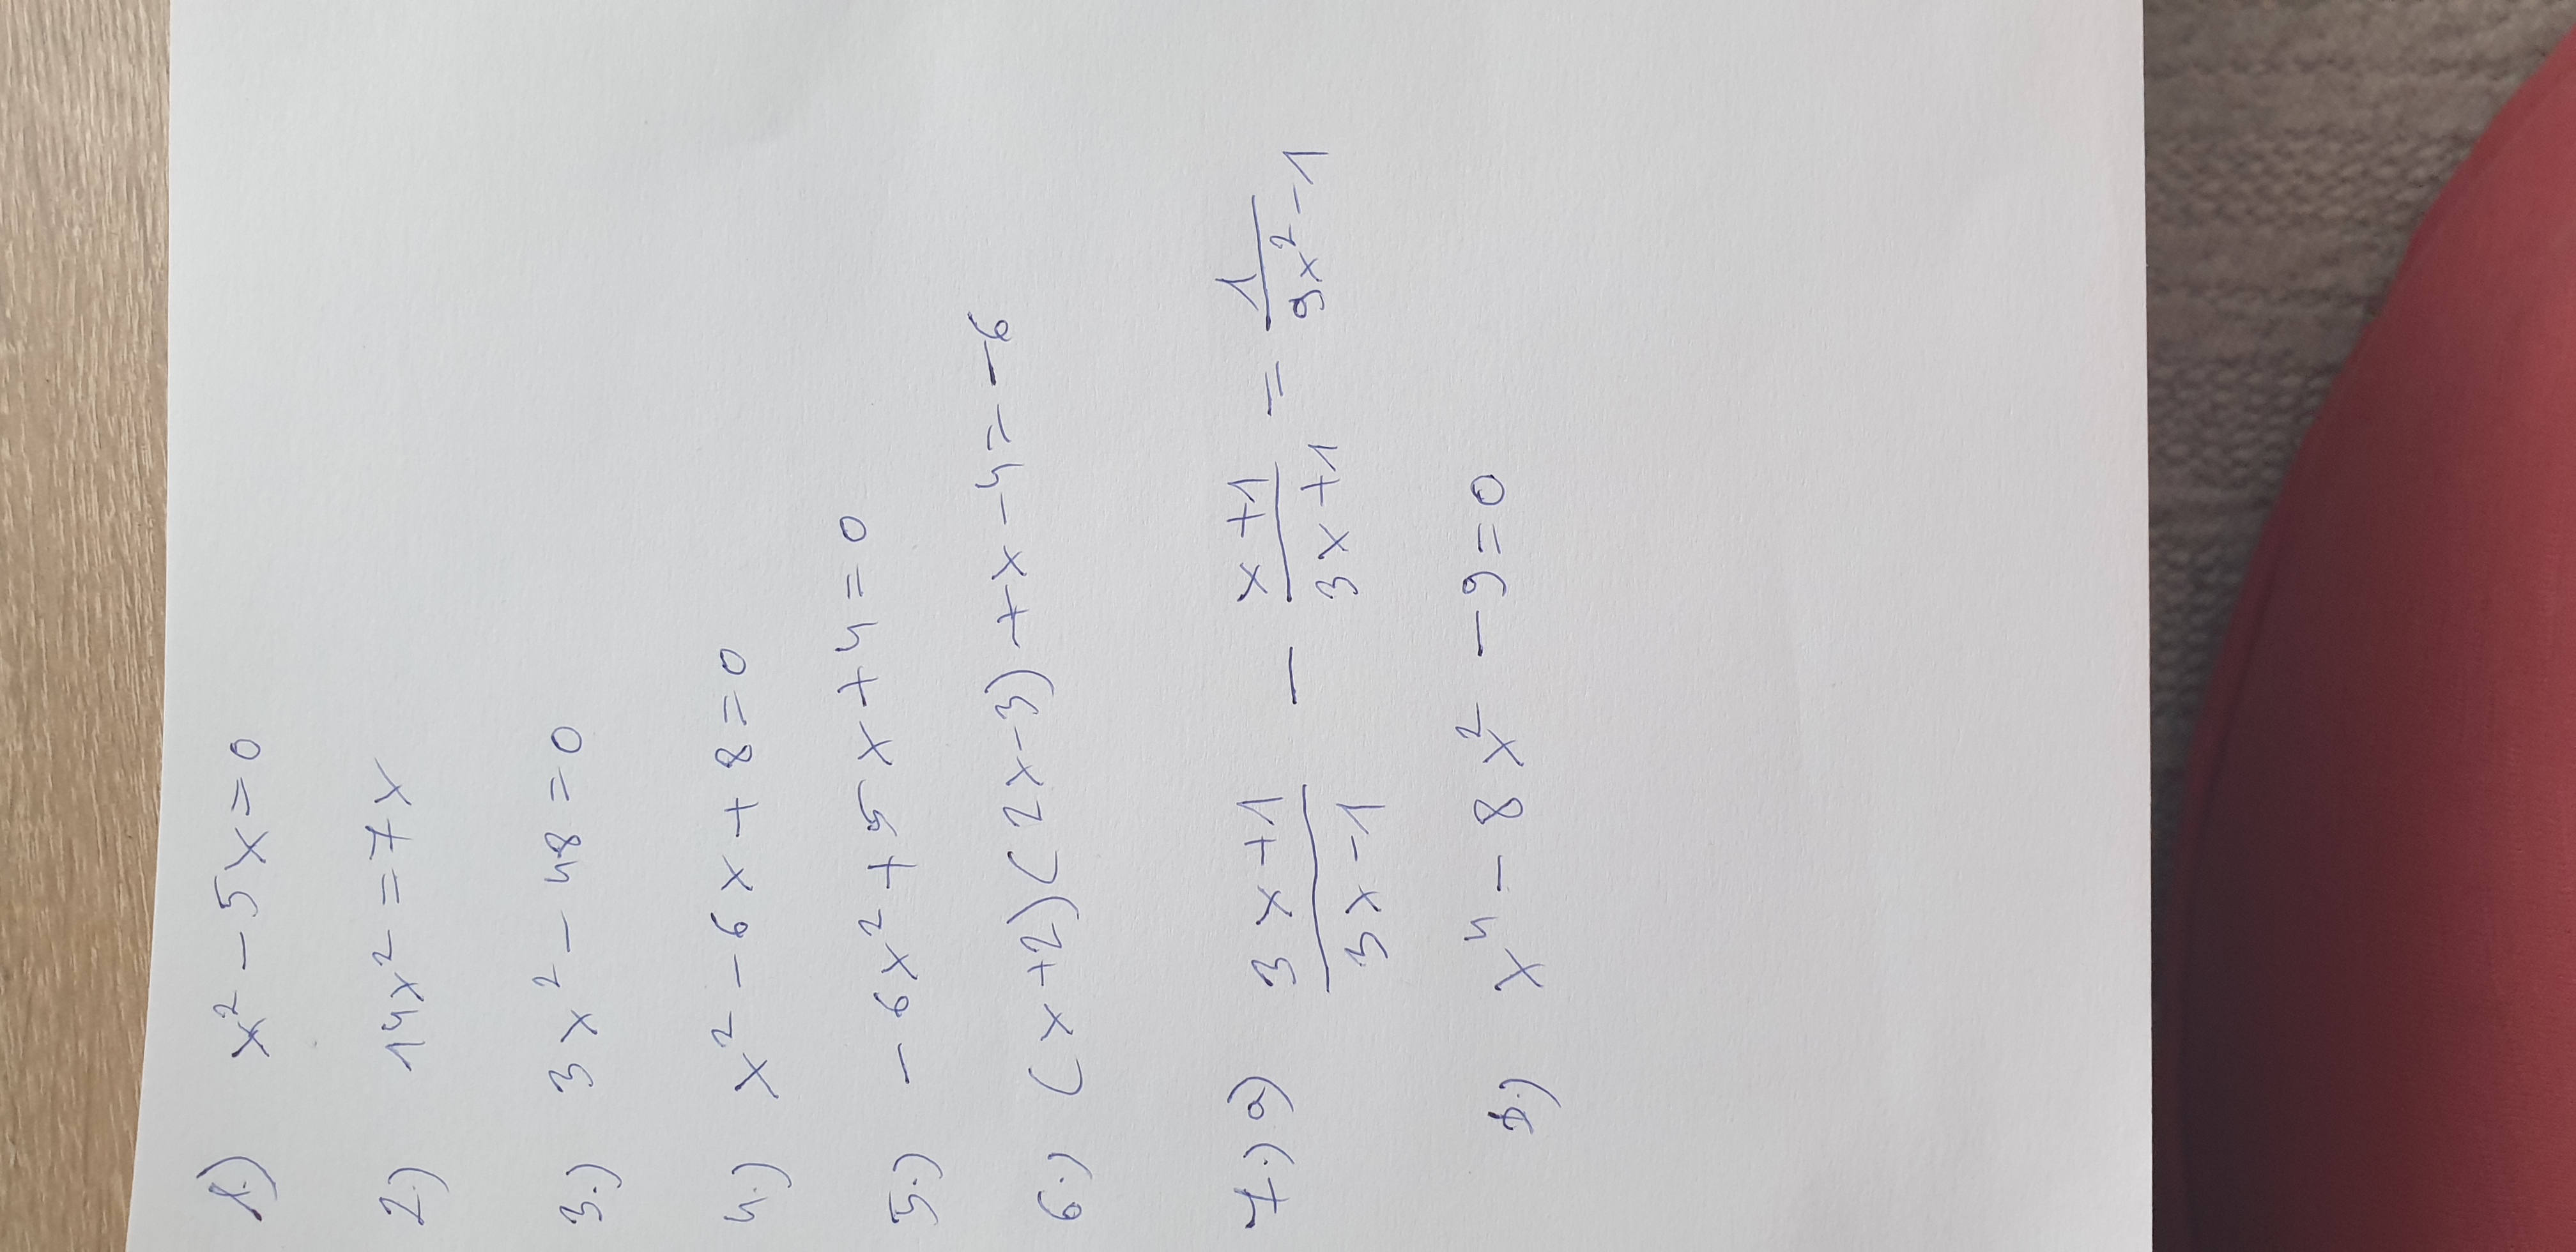 1.) x² - 5x = 0
2.) 14x² = 7x
3.) 3x² - 48 = 0
4.) x² - 6x + 8 = 0
5.) - 6x² + 5x + 4 = 0
6.) (x+2)(2x-3) + x - 4 = -6
7.) a) (3x+1)/(3x-1) - (x+1)/(3x+1) = 1/(9x²-1)
b.) x⁴ - 8x² - 9 = 0